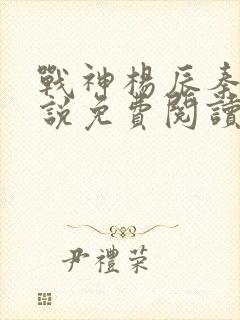 戰神楊辰秦
說免費閱讀
尹禮荣